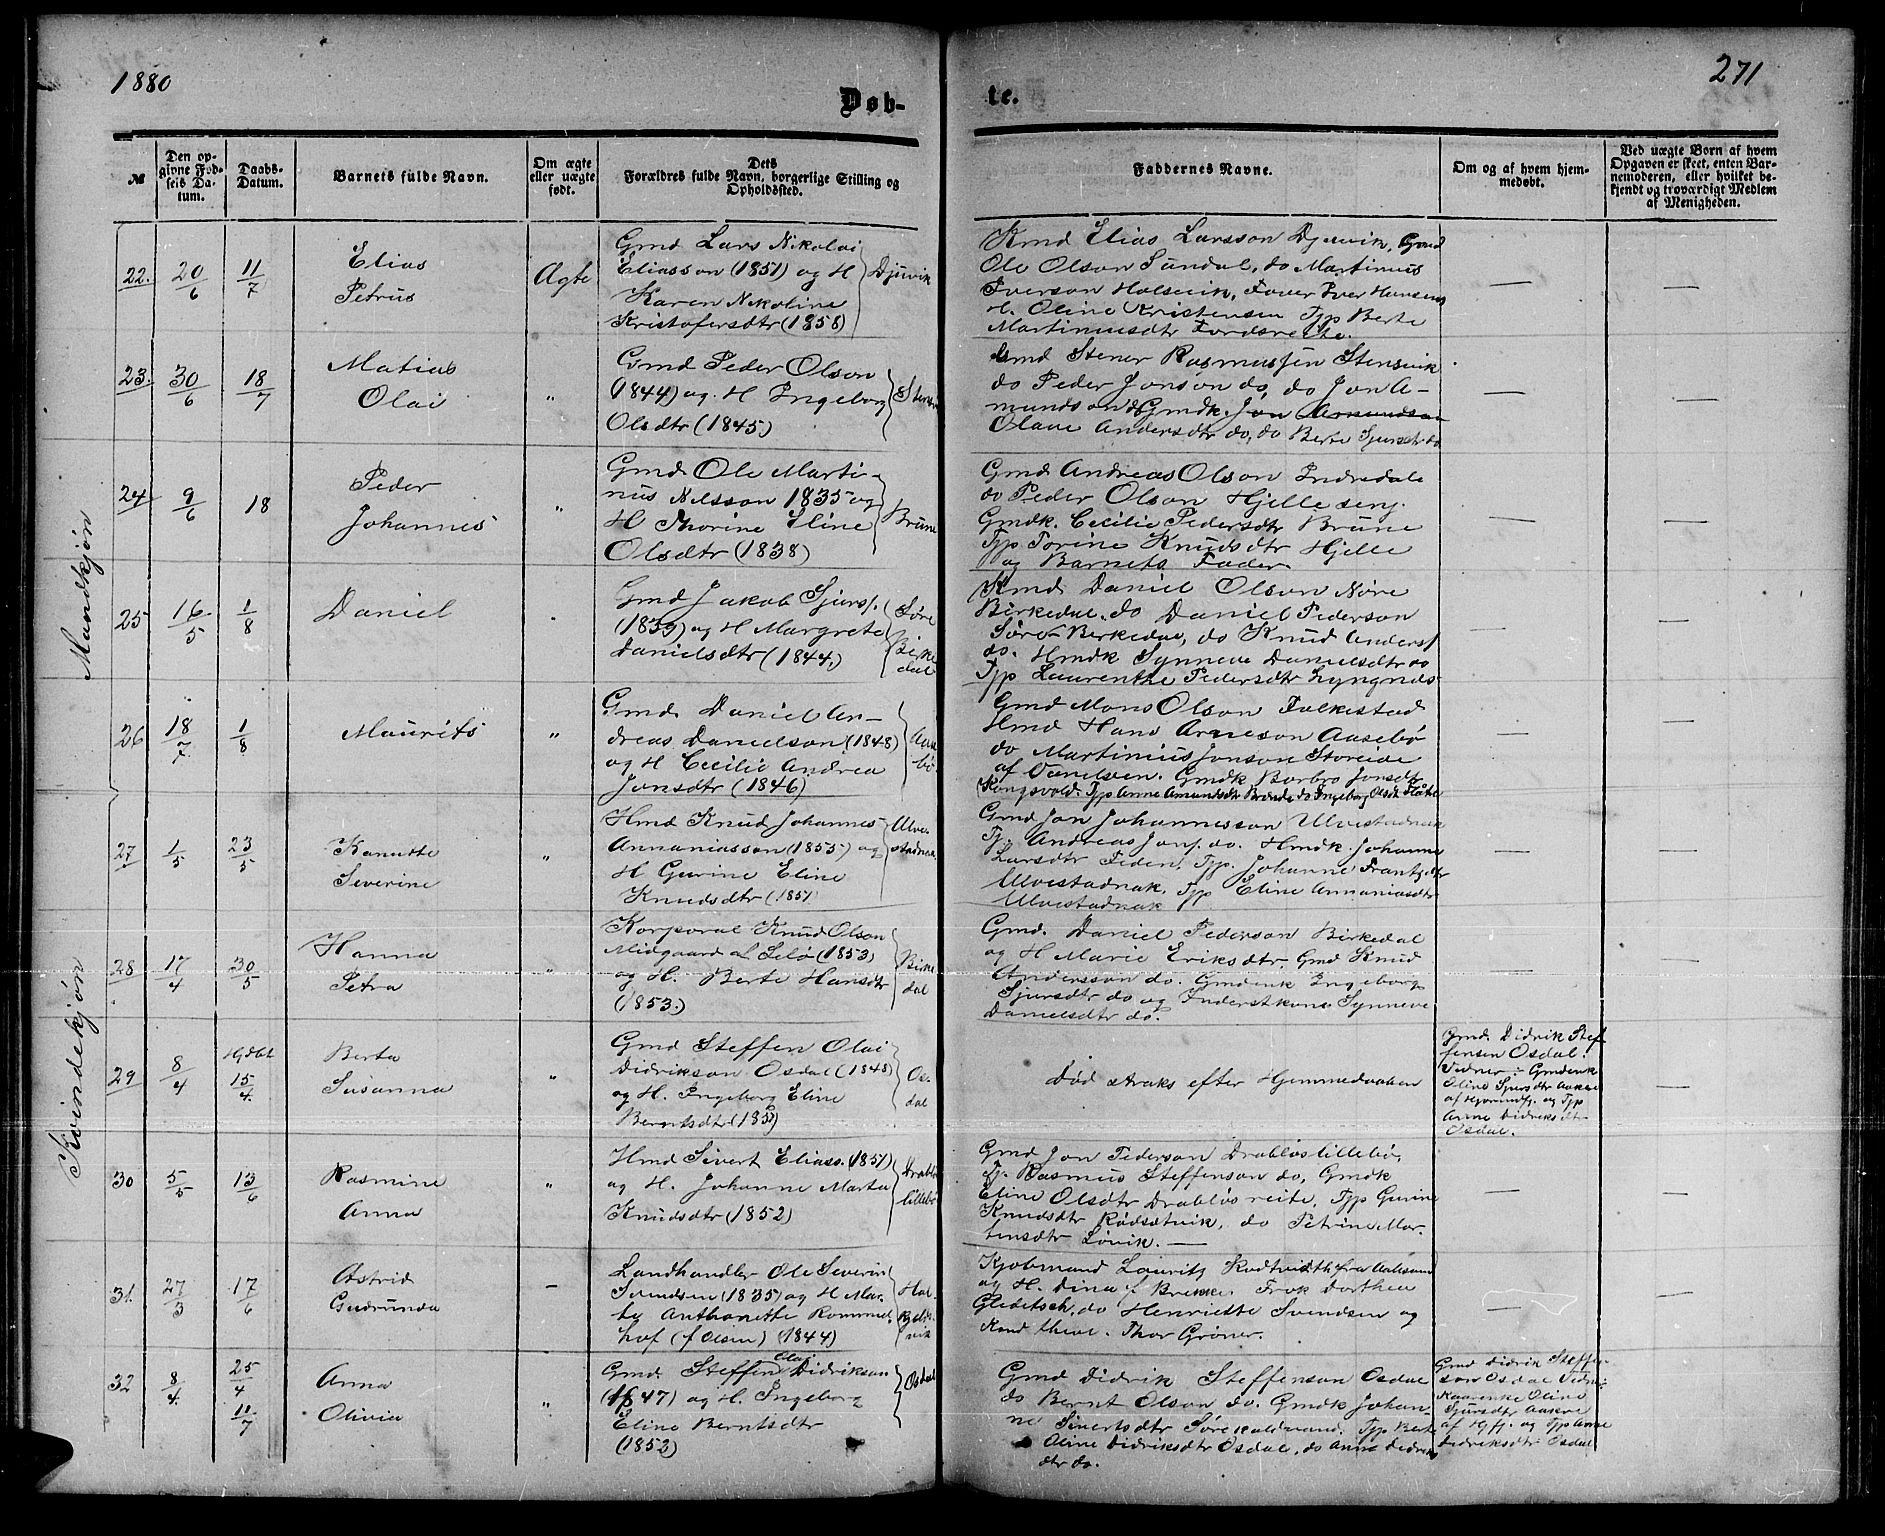 1880
271
Døb-
te.
№
Den opgivne Fødsels Datum.
Daabs-Datum.
Barnets fulde Navn.
Om ægte eller uægte født.
Dets Forældres fulde Navn, borgerlige Stilling og Opholdssted.
Faddernes Navne.
Om og af hvem hjemmedøbt.
Ved uægte Børn af hvem Opgaven er skeet, enten Barnemoderen, eller hvilket bekjendt og troværdigt Medlem af Menigheden.
Mandkjøn
22. 20/6 11/7
Elias
Petrus
Ægte
Gmd Lars Nikolai
Eliasson (1851) og H
Karen Nikoline
Kristofersdtr (1858)
Djuvik
Kmd Elias Larsson Djuvik, Gmd
Ole Olson Sundal, do Martinius
Iverson Holsvik, Fører Iver Hansens
H. Oline Kristensen Tjp Berte
Martiniusdtr
—
—
23. 30/6 18/7
Matias
Olai
"
Gmd Peder Olson
(1844) og H Ingeborg
Olsdtr (1845)
Gmd Stener Rasmussen Stensvik
do Peder Jonson do, do Jon A-
mundson do Gmdk. Jon Amundson
Olave Andersdtr do, do Berte Sjursdtr do
—
—
24. 9/6 18
Peder
Johannes
"
Gmd Ole Marti-
nus Nilsson 1835 og
H Thorine Eline
Olsdtr (1838)
Brune
Gmd Andreas Olson Indredale
do Peder Olson Hjelleseng.
Gmdk. Cecilie Pedersdtr Brune
Tjp Torine Knudsdtr Hjelle
og Barnets Fader
—
—
25 16/5 1/8
Daniel
"
Gmd Jakob Sjurs.
(1839) og H Margrete
Danielsdtr (1844)
Søre
Birke
dal
Kmd Daniel Olson Nøre
Birkedal, do Daniel Pederson
Søre Birkedal, do Knud Anders.
do. Hmdk Synneve Danielsdtr do
Tjp Laurentse Pedersdtr Lyngnes
—
—
26 18/7 1/8
Maurits
"
Gmd Daniel An-
dreas Danielson (1848)
og H Cecilie Andrea
Jonsdtr (1846)
Aase
bø.
Gmd Mons Olson Folkestad
Hmd Hans Arneson Aasebø
do Martinius Jonson Storeide
af Vanelven. Gmdk Barbro Jonsdtr
Kongsvold. Tjp Anne Amundsdtr do Ingeborg Olsdtr Flåte
—
—
Kvindekjøn
27 1/5 23/5
Kanutte
Severine
"
Hmd Knud Johannes
Annaniasson (1855) og
H Gurine Eline
Knudsdtr (1851)
Ulve-
stadnak
Gmd Jon Johannesson Ulvestadnak
Tj. Andreas Jons. do. Hmdk Johanne
Larsdtr Feden, Tjp. Johanne Frantsdtr
Ulvestadnak, Tjp Eline Annaniasdtr
Ulvestadnak
—
—
28 17/4 30/5
Hanna
Petra
"
Korporal Knud Olson
Midgaard af Selø (1853)
og H. Berte Hansdtr
(1853)
Birke
dal
Gmd. Daniel Pederson Birkedal
og H Marie Eriksdtr, Gmd Knud
Andersson do. Gmdenk Ingeborg
Sjursdtr do og Inderstkone Synneve
Danielsdtr do.
—
—
29 8/4 Hjdbt 15/4
Berta
Susanna
"
Gmd Steffen Olai
Didrikson Osdal (1848)
og H. Ingeborg Eline
Berntsdtr (1852)
Os-
dal
Død straks efter Hjemmedaaben
Gmd. Didrik Stef
fensen Osdal.
Vidner: Gmdenk
Oline Sjursdtr Aakre
af Hjørundfj. og Tjp
Anne Didriksdtr
Osdal.
—
30 5/5 13/6
Rasmine
Anna
"
Hmd Sivert Eliass. (1851)
og H. Johanne Marta
Knudsdtr (1852)
Drabløs
lillebø
Gmd Jon Pederson Drabløslillebø,
Tj. Rasmus Steffenson do, Gmdk
Eline Olsdtr Drabløsreite, Tjp Gurine
Knudsdtr Rødsætvik, do Petrine Mar-
tinsdtr Løvik. —
—
—
31. 27/3 17/6
Astrid
Gudrunda
—
Landhandler Ole Severin
Svendsen (1835) og H Mar-
ty Anthonette Rommel-
hof (f Olsen) (1844)
Kjøbmand Lauritz Rodtvidth fra Aalesund
og H. Dina f Brekke. Frøk Dorthea
Gleditsch, do Henriette Svendsen og
Kand theol. Thor Grøner.
—
—
32 8/4 25/4 11/7
Anna
Olivia
"
Gmd Steffen Olai Didrikson
(1847) og H. Ingeborg
Eline Berntsdtr
(1852)
Osdal
Gmd Didrik Steffenson Osdal
do Bernt Olson do. Gmdk Johan-
ne Sivertsdtr Tjp Berte
Oline Didriksdtr Osdal, do Anne Didriks
dtr do.
Gmd Didrik Steffen-
son Osdal Vidner
Oline
Sjursdtr Aakre
af Hjfj. og Tjp Anne
Didriksdtr Osdal